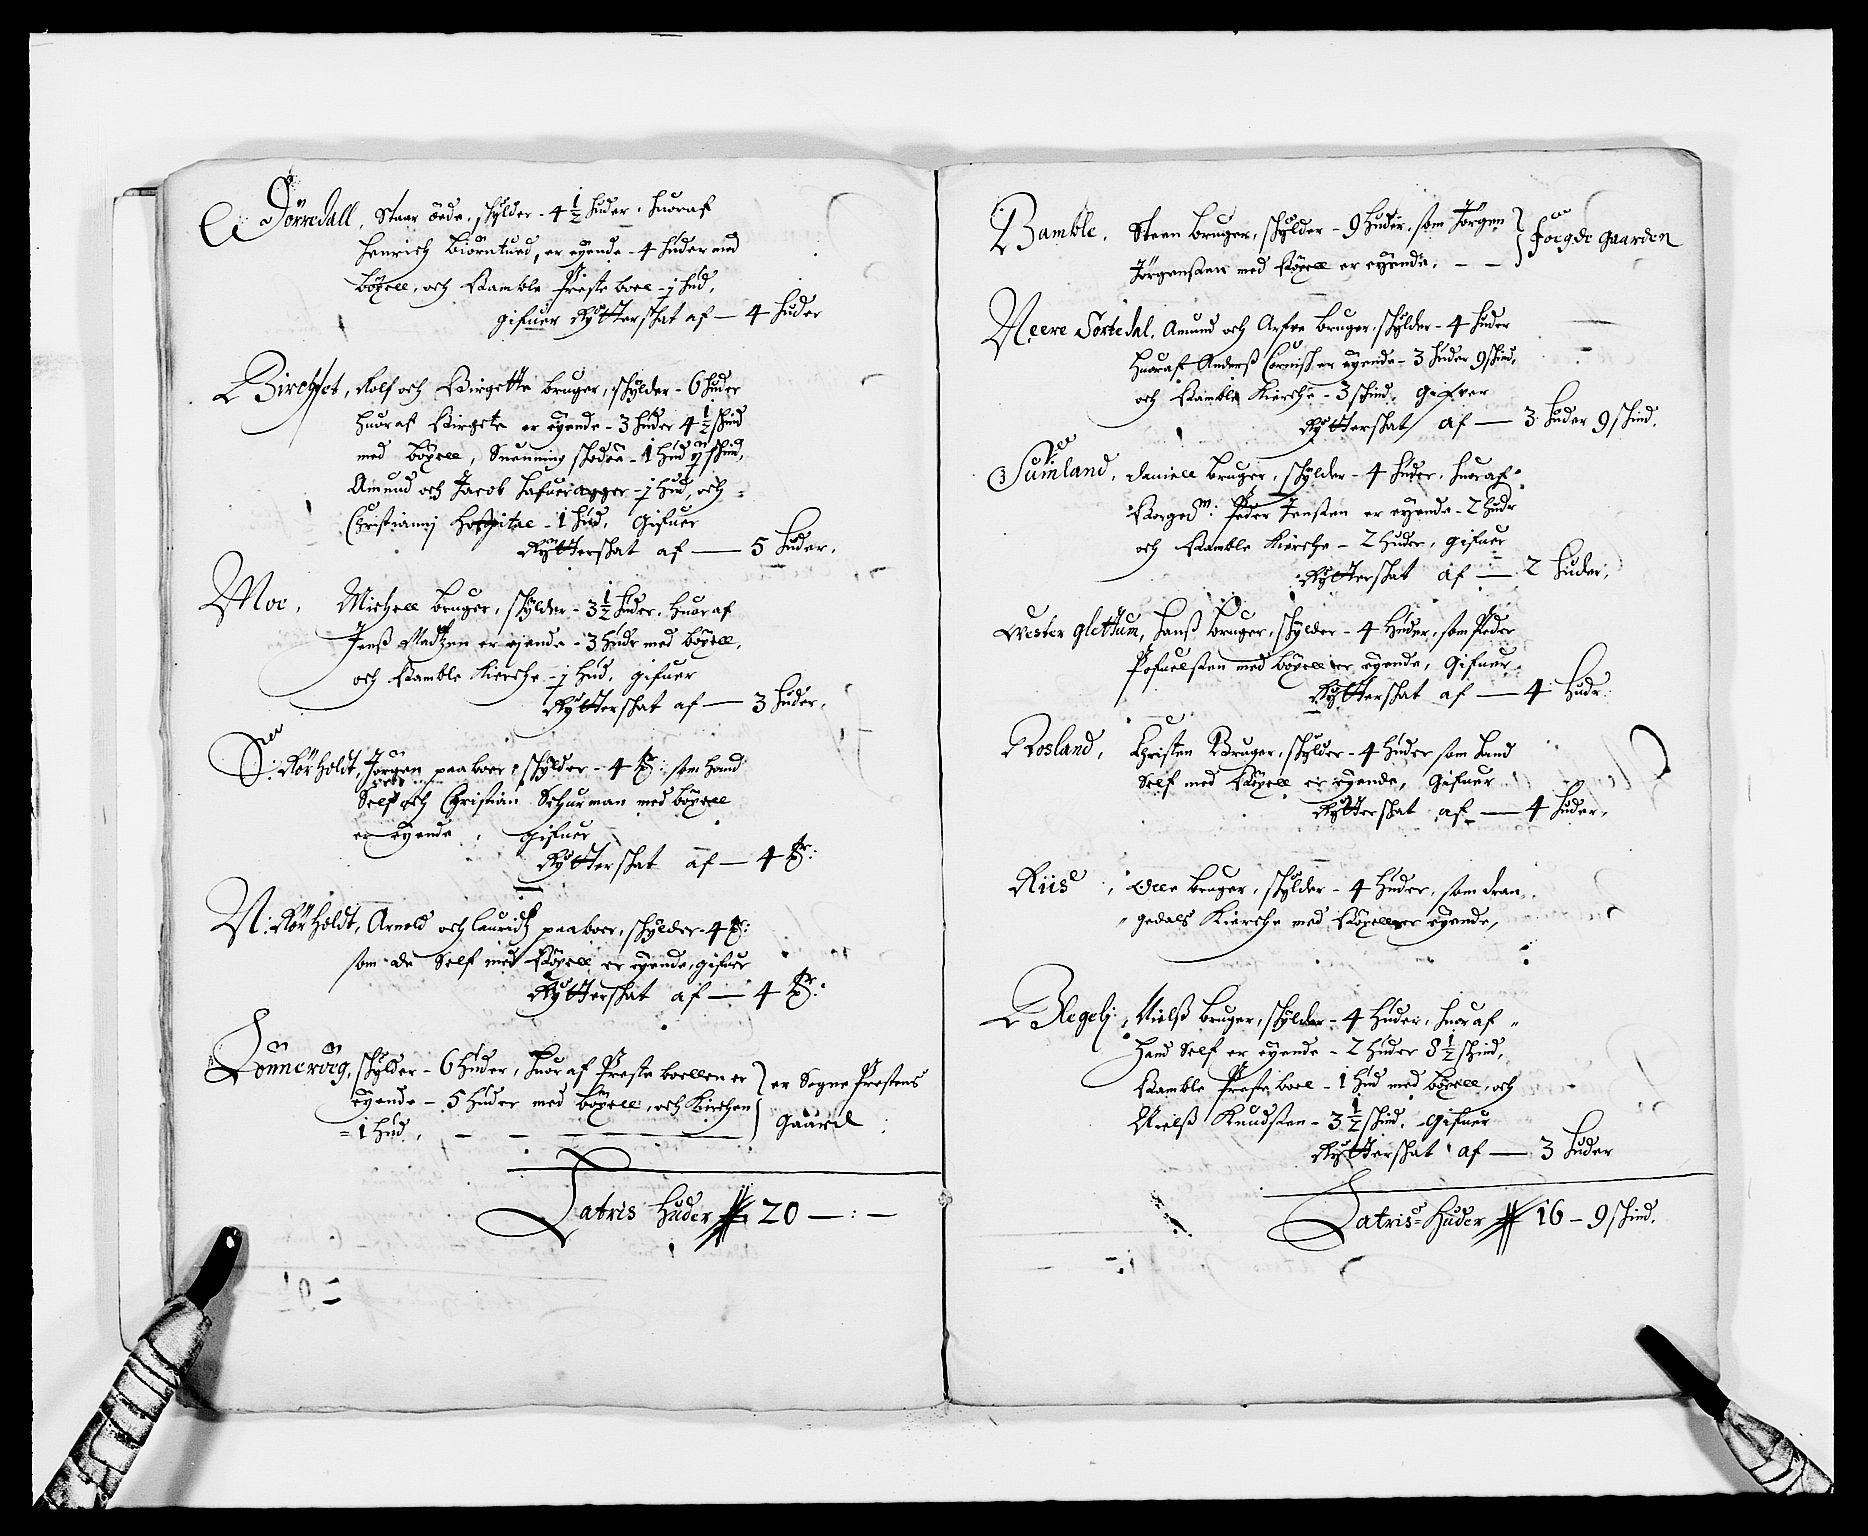 Dörredall, Staar öede, schÿlder - 4 1/2 huder, huoraf
Henrich Biörntued, er eÿende - 4 huder med
böxell, och Bamble Præste boel - j hud,
gifuer Rÿtterschat af — 4 huder
Birchset, Rolf och Birgette bruger, schÿlder - 6 huder
huoraf Birgete er eÿende - 3 huder 4 1/2 schind
med böxell, Suenning 1 hud schind,
Amund och Jacob - j hud, och
Christianj Hospitae - 1 hud, Gifuer
Rÿtterschat af — 5 huder.
Moe, Michell bruger, schÿlder - 3 1/2 huder, huoraf
Jenß Madtzen er eÿende - 3 hudr med böxell,
och Bamble Kierche - j hud, gifuer
Rÿtterschat af — 3 huder,
S: Rörholdt, Jörgen paaboer, schÿlder - 4 tr: som hand
Self och Christian Schurman med böxell
er eÿende, gifuer
Rÿtterschat af — 4 tr:
N: Rörholdt, Arnold och Lauridtz paaboer, schÿlder - 4 tr:
som de Self med böxell er eÿende, gifuer
Rÿtterschat af — 4 tr:
Lönneröeg, schÿlder - 6 huder, huoraf Præste boellen er } er Sogne Prestens
eÿende - 5 huder med böxell, och Kirchen } Gaard
= 1 hud, — — —
Latris Huder 20 — : —
Bamble, Steen bruger, schÿlder - 9 huder, som Jörgen } foegde gaarden
Jörgensen med böxell er eÿende, — —
Neere Sortedal, Amund och bruger, schÿlder - 4 huder
huoraf Anderß er eÿende - 3 huder 9 schind,
och Bamble Kierche - 3 schind, Gifver
Rÿtterschat af — 3 huder 9 schind.
Sumland, Daniell bruger, schÿlder - 4 huder, huoraf
Borgem: Peder Jensen er eÿende - 2 hudr
och Bamble Kierche - 2 huder, gifuer
Rÿtterschat af — 2 huder,
Wester Glettum, Hanß bruger, schÿlder - 4 huder, som Peder
Pofuelsen med böxell er eÿende, Gifuer
Rÿtterschat af — 4 hudr:
Rosland, Christen Bruger, schÿlder - 4 huder som hand
Self med böxell er eÿende, Gifuer
Rÿtterschat af — 4 huder,
Riise, Olle bruger, schÿlder - 4 huder, som dran-
gedals Kierche med böxell er eÿende,
Blegelj, Nielß bruger, schÿlder - 4 huder, huoraf
hand Self er eÿende - 2 huder 8 1/2 schind,
Bamble Præste boel - 1 hud med böxell, och
Nielß Knudsen - 3 1/2 schind, Gifuer
Rÿtterschat af — 3 huder
Latris Huder 16 - 9 schind.